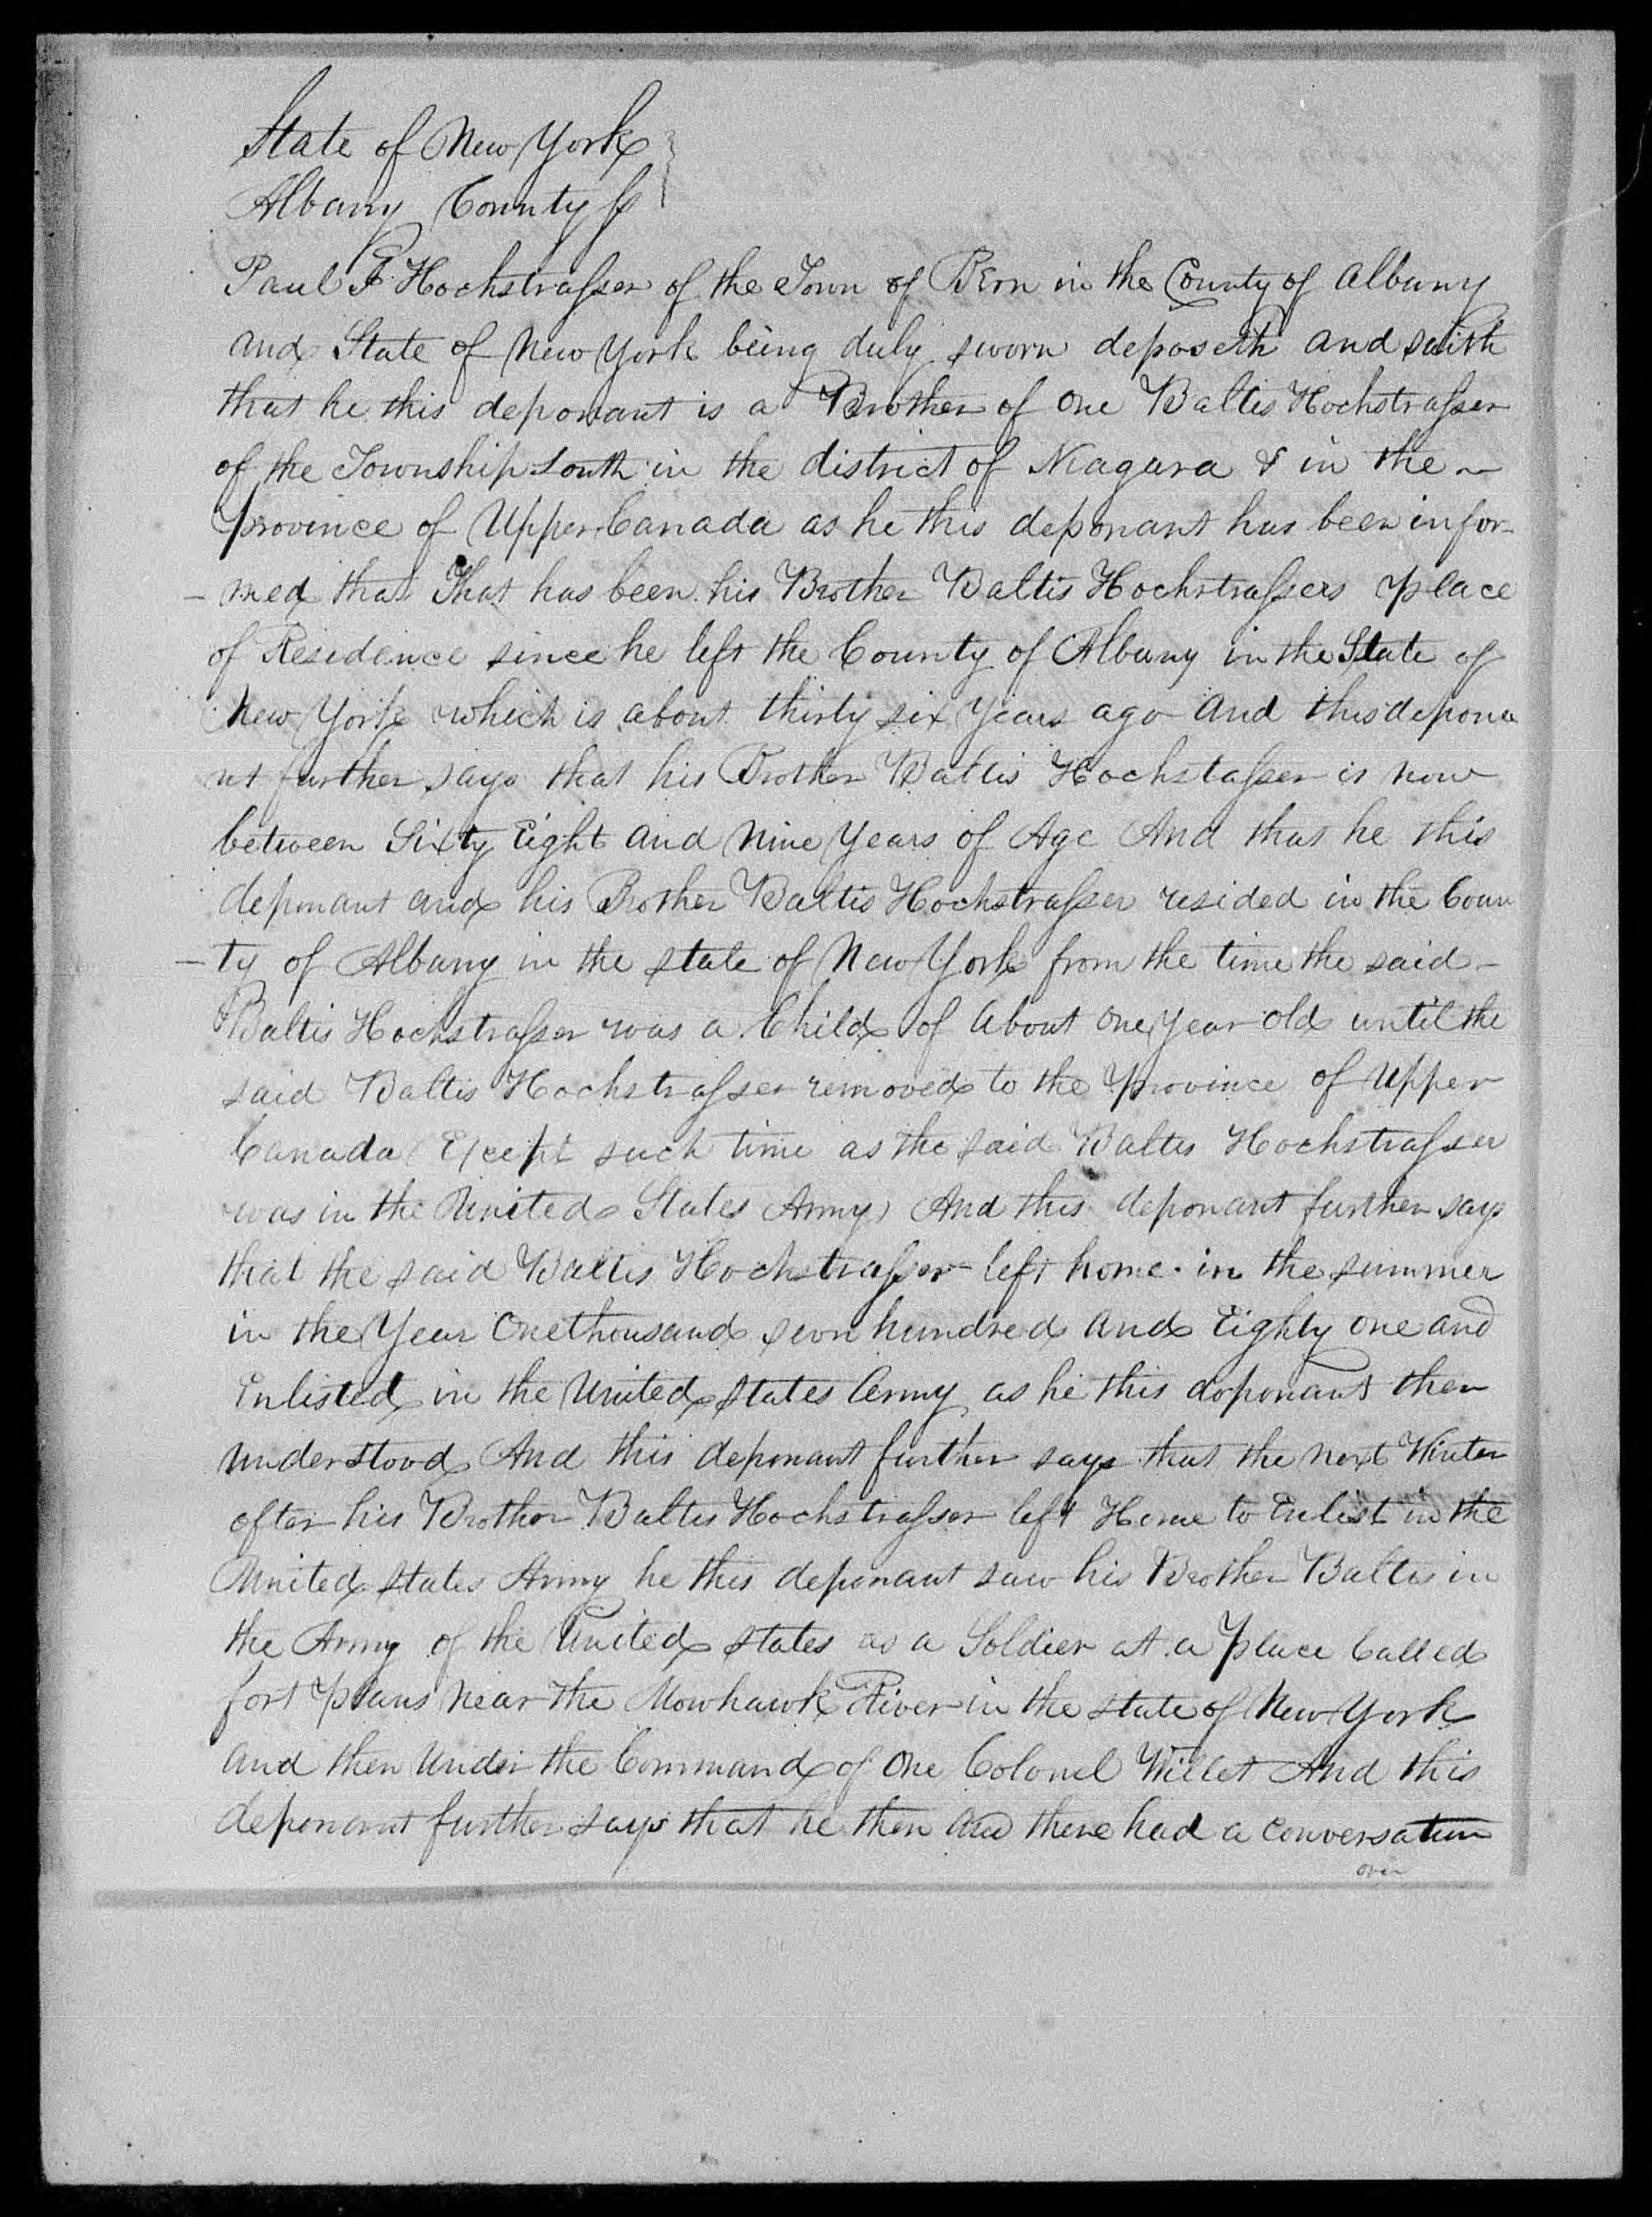 State of New York
Albany County ss
Paul F Hochstrasser of the Town of Bern in the County of Albany
and State of New York being duly sworn deposeth and saith
that he this deponant is a Brother of one Baltis Hochstrasser
of the Township South in the district of Niagara & in the
province of Upper Canada as he this deponant has been infor-
- med that That has been his Brother Baltis Hochstrassers place
of Residence since he left the County of Albany in the State of
New York which is about thirty six Years ago And this depona
nt further says that his Brother Baltis Hochstasser is now
between Sixty Eight and Nine Years of Age And that he this
deponant and his Brother Baltis Hochstrasser resided in the Coun
- ty of Albany in the state of New York from the time the said -
Baltis Hochstrasser was a Child of about one year old until the
said Baltis Hochstrasser removed to the province of Upper
Canada (Except such time as the said Baltis Hochstrasser
was in the United States Army) And this deponant further says
that the said Baltis Hochstrasser left home in the summer
in the Year One thousand sevn hundred and Eighty one and
Enlisted in the United States Army as he this doponant then
understood And this deponant further says that the next Winter
after his Brother Baltis Hochstrasser left Home to Enlist in the
United States Army he this deponant saw his Brother Baltis in
the Army of the United States as a Soldier at a place Called
fort plans near the Mowhawk River in the state of New York
and then under the Command of One Colonel Willet And this
deponant further says that he then and there had a conversation
over